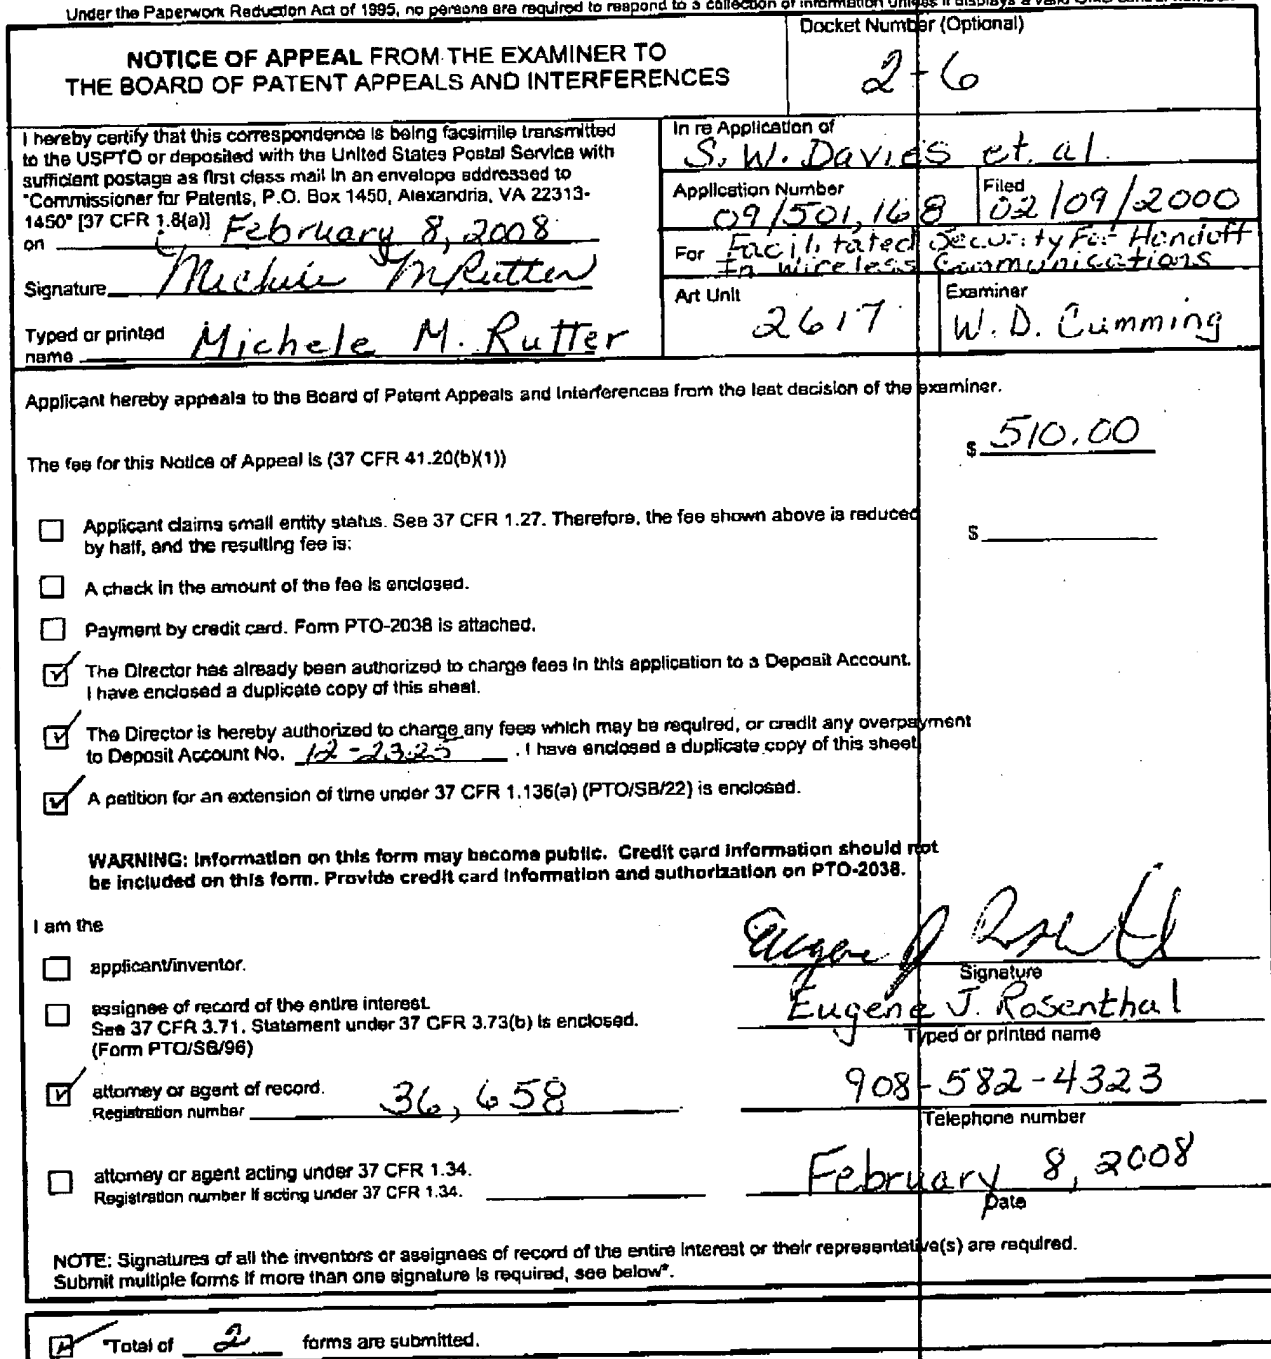 Under the Paperwork Reduction Act of 1995, no persons are required to respond to a collection of information unless it displays a valid OMB control number.
NOTICE OF APPEAL FROM THE EXAMINER TO
THE BOARD OF PATENT APPEALS AND INTERFERENCES
Docket Number (Optional)
2-6
I hereby certify that this correspondence is being facsimile transmitted
to the USPTO or deposited with the United States Postal Service with
sufficient postage as first class mail in an envelope addressed to
"Commissioner for Patents, P.O. Box 1450, Alexandria, VA 22313-
1450" [37 CFR 1.8(a)]
on February 8, 2008
Signature Michele M Rutter
Typed or printed
name Michele M. Rutter
In re Application of
S. W. Davies et. al.
Application Number
09/501,168
Filed
02/09/2000
For Facilitated Security For Handoff
In Wireless Communications
Art Unit
2617
Examiner
W. D. Cumming
Applicant hereby appeals to the Board of Patent Appeals and Interferences from the last decision of the examiner.
The fee for this Notice of Appeal is (37 CFR 41.20(b)(1))
$ 510.00
Applicant claims small entity status. See 37 CFR 1.27. Therefore, the fee shown above is reduced
by half, and the resulting fee is:
$
A check in the amount of the fee is enclosed.
Payment by credit card. Form PTO-2038 is attached.
The Director has already been authorized to charge fees in this application to a Deposit Account.
I have enclosed a duplicate copy of this sheet.
The Director is hereby authorized to charge any fees which may be required, or credit any overpayment
to Deposit Account No. 12-2325. I have enclosed a duplicate copy of this sheet
A petition for an extension of time under 37 CFR 1.136(a) (PTO/SB/22) is enclosed.
WARNING: Information on this form may become public. Credit card information should not
be included on this form. Provide credit card information and authorization on PTO-2038.
I am the
applicant/inventor.
assignee of record of the entire interest.
See 37 CFR 3.71. Statement under 37 CFR 3.73(b) is enclosed.
(Form PTO/SB/96)
attorney or agent of record.
Registration number 36,658
attorney or agent acting under 37 CFR 1.34.
Registration number if acting under 37 CFR 1.34.
Eugene J Rosenthal
Signature
Eugene J. Rosenthal
Typed or printed name
908-582-4323
Telephone number
February 8, 2008
Date
NOTE: Signatures of all the inventors or assignees of record of the entire interest or their representative(s) are required.
Submit multiple forms if more than one signature is required, see below*.
*Total of 2 forms are submitted.